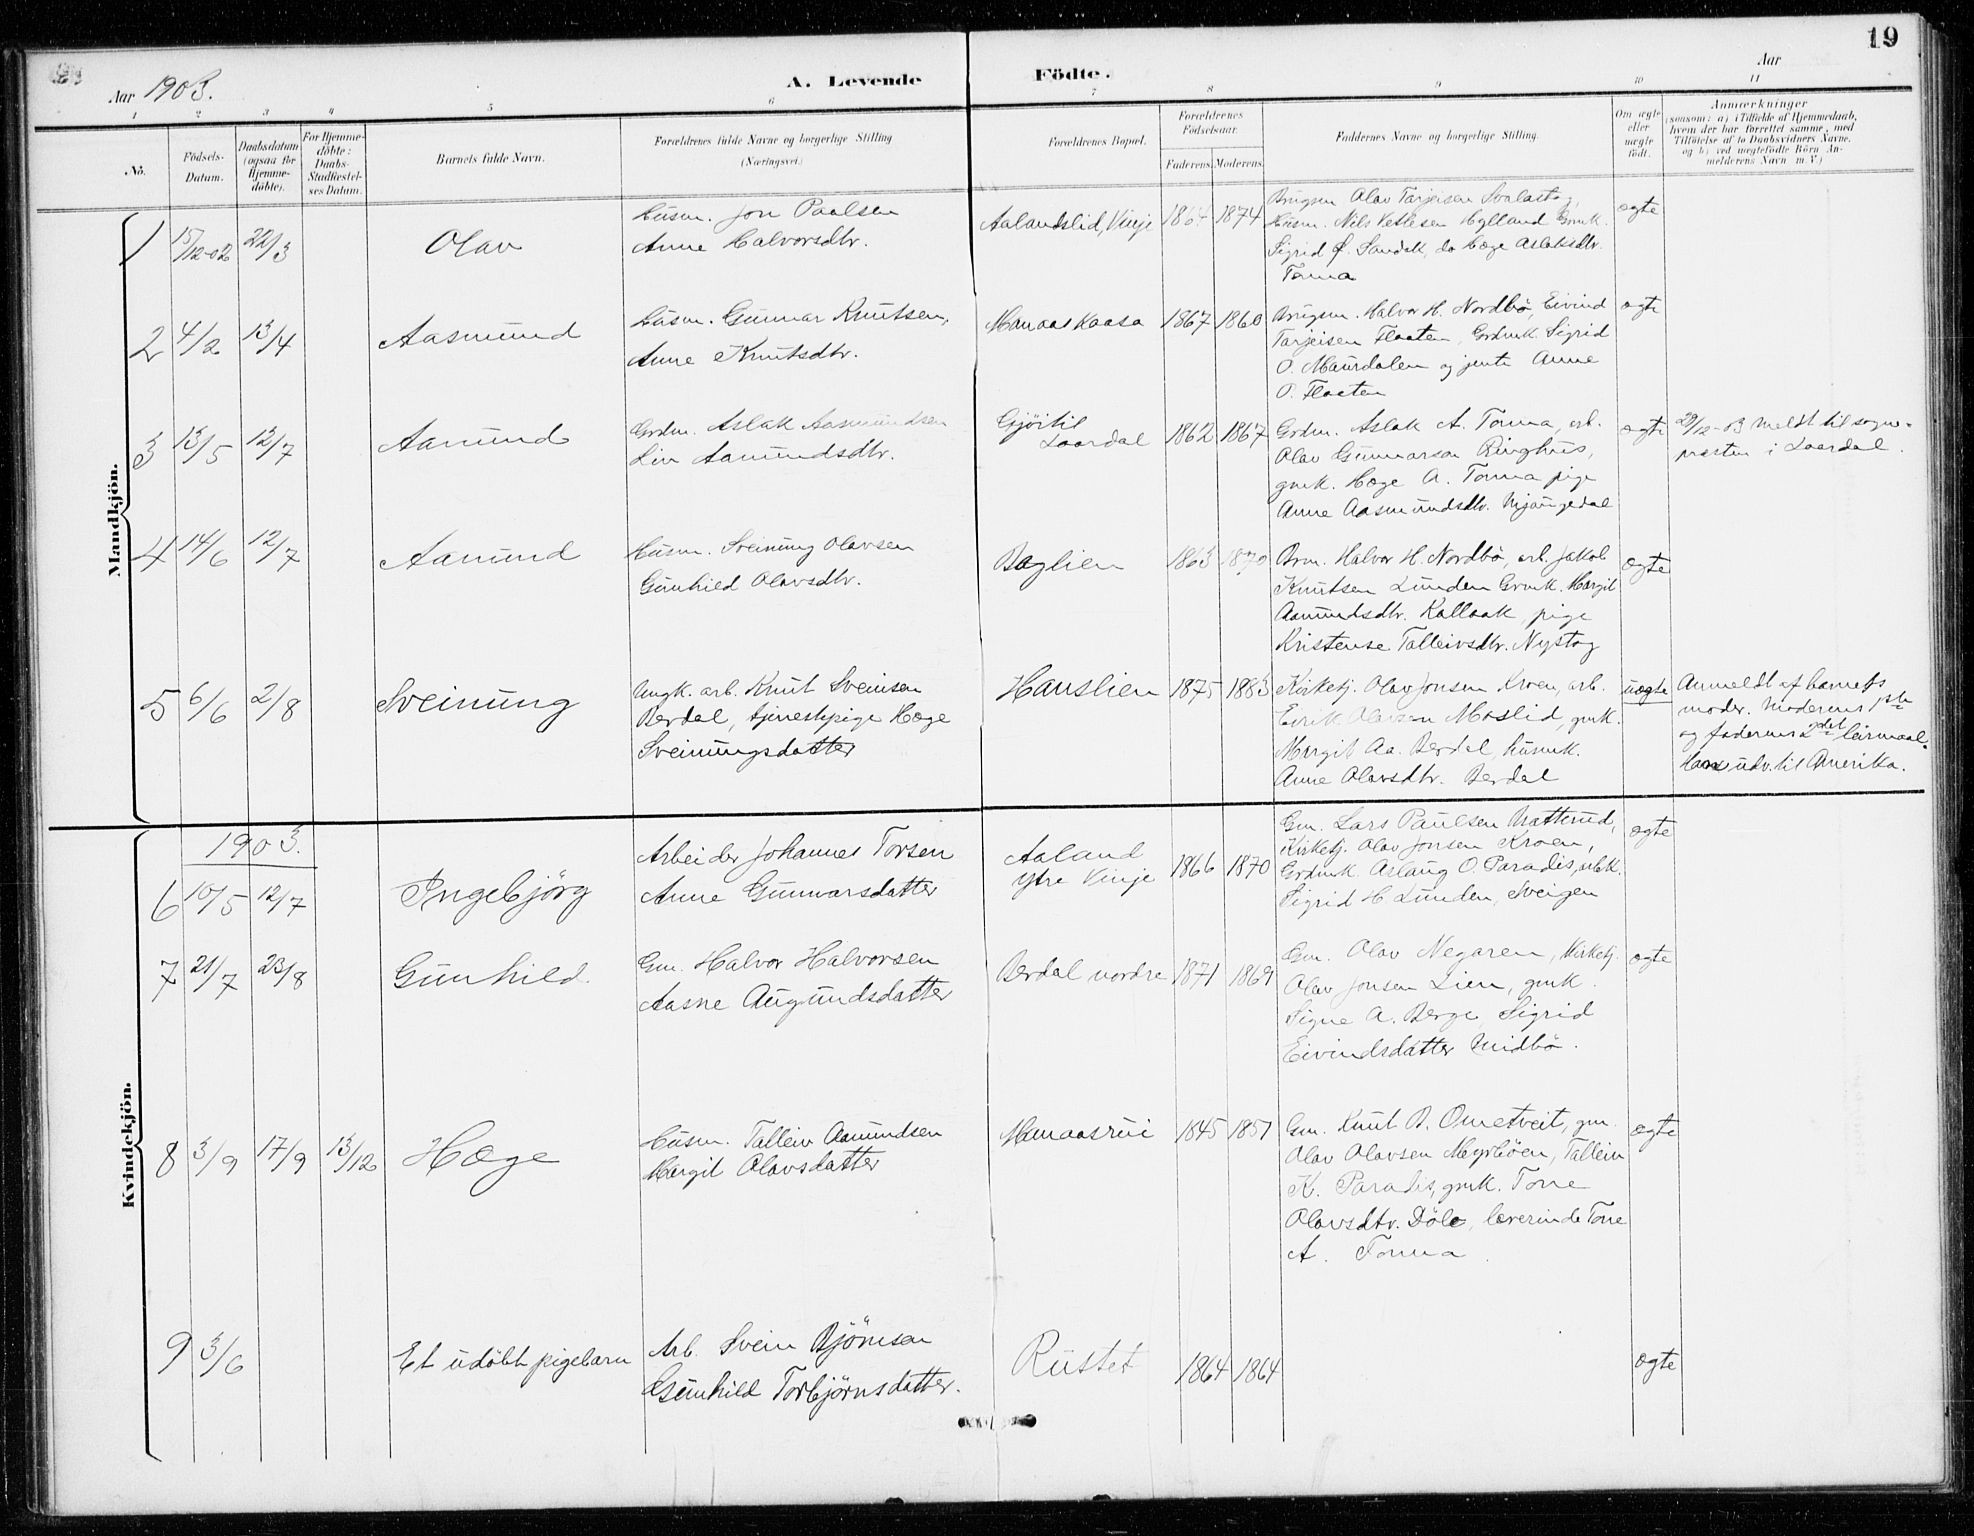 19
Aar 1903.
A. Levende Födte.
Aar
1 2 3 4 5 6 7 8 9 10 11
No.
Födsels-Datum.
Daabsdatum (ogsaa for Hjemme-döbte).
For Hjemme-döbte: Daabs-Stadfæstel-ses Datum.
Barnets fulde Navn.
Forældrenes fulde Navne og borgerlige Stilling (Næringsvei.)
Forældrenes Bopæl.
Forældrenes Födselsaar.
Faderens. Moderens.
Faddernes Navne og borgerlige Stilling.
Om ægte eller uægte födt.
Anmærkninger
(saasom: a) i Tilfælde af Hjemmedaab,
hvem der har forrettet samme, med
Tilföielse af to Daabsvidners Navne.
og b) ved uægtefödte Börn An-
melderens Navn m. V.)
Mandkjön.
1 15/12-02 22/3 Olav
Husm. Jon Paalsen
Anne Halvorsdtr.
Aalandslid, Vinje 1864 1874
Brugsm Olav Tarjeisen Svalastog,
Husm. Nils Vetlesen Hylland Gmk.
Sigrid Ø. Sandok, do Hæge Aslaksdtr.
Tonna
ægte
2 4/2 13/4 Aasmund
Husm. Gunnar Knutsen,
Anne Knutsdtr.
Manaaskaasa 1867 1860
Brugsm. Halvor H. Nordbö, Eivind
Tarjeisen Flaaten, Grdmk. Sigrid
O. Maurdalen og jente Anne
O. Flaaten
ægte
3 13/5 12/7 Aamund
Grdm. Aslak Aasmundsen
Liv Aamundsdtr.
Gjöitil
Laardal 1862 1867
Grdm. Aslak A. Tonna, arb.
Olav Gunnarson Ringhus,
gmk. Hæge A. Tonna pige
Anne Aasmundsdtr. Mjaugedal
ægte
29/12-03 Meldt til sogne-
presten i Laardal.
4 14/6 12/7 Aamund
Husm. Sveinung Olavsen
Gunhild Olavsdtr.
Baglien 1863 1870
Brm. Halvor H. Nordbö, arb. Jakob
Knutsen Lunden Grmk. Margit
Aamundsdtr. Kallaak, pige
Kristense Talleivsdtr. Nystog
ægte
5 6/6 2/8 Sveinung
Ungk. arb. Knut Sveinsen
Berdal, tjenestepige Hæge
Sveinungsdatter
Hauslien 1875 1883
Kirketj. Olav Jonsen Kroen, arb.
Eirik Olavsen Moslid, gmk.
Margit Aa. Berdal, husmk.
Anne Olavsdtr. Berdal
uægte
Anmeldt af barnets
moder. Moderens 1ste
og faderens 2det leirmaal.
Han udv. til Amerika.
Kvindekjön.
1903.
6 10/5 12/7 Ingebjörg
Arbeider Johannes Torsen
Anne Gunnarsdatter
Aaland
ytre Vinje 1866 1870
Gm. Lars Paulsen Nratterud,
Kirketj. Olav Jonsen Kroen,
Grdmk. Aslaug O. Paradis, arbk.
Sigrid H. Lunden, Sveigen
ægte
7 21/7 23/8 Gunhild.
Gm. Halvor Halvorsen
Aasne Augundsdatter
Berdal nordre 1871 1869
Gm. Olav Negaren, Kirketj.
Olav Jonsen Lien, gmk.
Signe A. Berge, Sigrid
Eivindsdatter Midbö.
ægte
8 3/9 17/9 13/12 Hæge
Husm. Talleiv Aamundsen
Margit Olavsdatter
Manaasrui 1845 1851
Gm. Knut B. Ometveit, gm.
Olav Olavsen Myrböen, Talleiv
K. Paradis, gmk. Tone
Olavsdtr. Döle, lærerinde Tone
A. Tonna.
ægte
9 3/6 Et udöbt pigebarn
Arb. Svein Björnsen
Gunhild Torbjörnsdatter.
Rustet 1864 1864
ægte